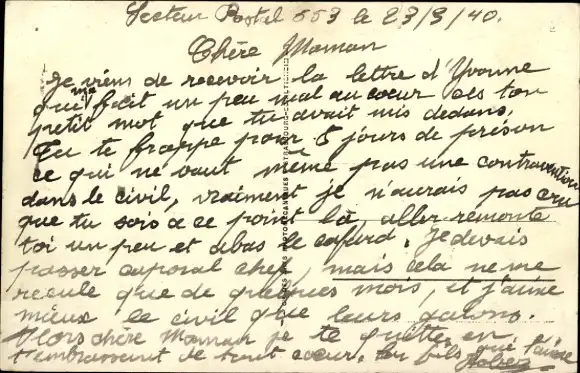 Secteur Postal 653 le 23/3/40.
Chère Maman
Je viens de recevoir la lettre d'Yvonne
qui m'a fait un peu mal au coeur ces ton
petit mot que tu avait mis dedans,
Tu te frappe pour 5 jours de prison
ce qui ne vaut même pas une contravention
dans le civil, vraiment je n'aurais pas cru
que tu sois a ce point là, aller remonte
toi un peu et abas le cafard. Je devais
passer caporal chef, mais cela ne me
recule que de quelques mois, et j'aime
mieux le civil que leurs galons.
Alors chère Maman je te quitte en
t'embrassant de tout coeur. ton fils qui t'aime